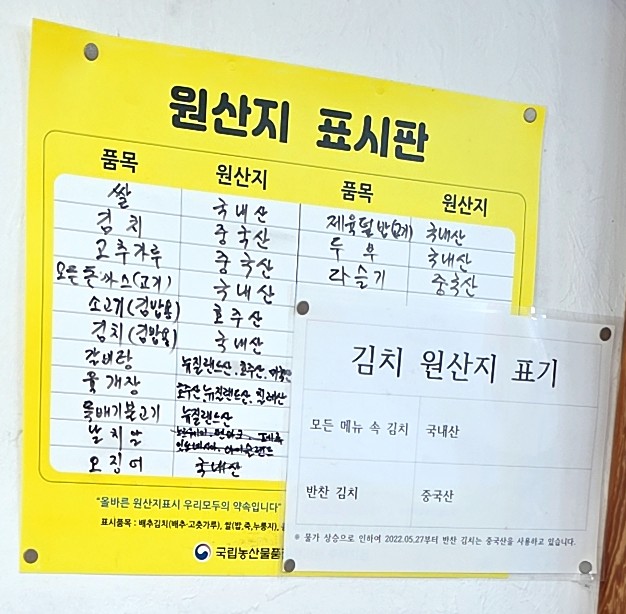 원산지 표시판
품목 원산지 품목 원산지
쌀 국내산 제육덮밥(돼지) 국내산
김치 중국산 두부 국내산
고추가루 중국산 다슬기 중국산
모든돈까스(고기) 국내산
소고기(김밥용) 호주산
김치(김밥용) 국내산
갈비탕 뉴질랜드산, 호주산, 미국산
육개장 호주산 뉴질랜드산, 칠레산
뚝배기불고기 뉴질랜드산
날치알
오징어 국내산
"올바른 원산지표시 우리모두의 약속입니다"
표시품목 : 배추김치(배추·고춧가루), 쌀(밥,죽,누룽지),
국립농산물품
김치 원산지 표기
모든 메뉴 속 김치 국내산
반찬 김치 중국산
※ 물가 상승으로 인하여 2022.05.27부터 반찬 김치는 중국산을 사용하고 있습니다.